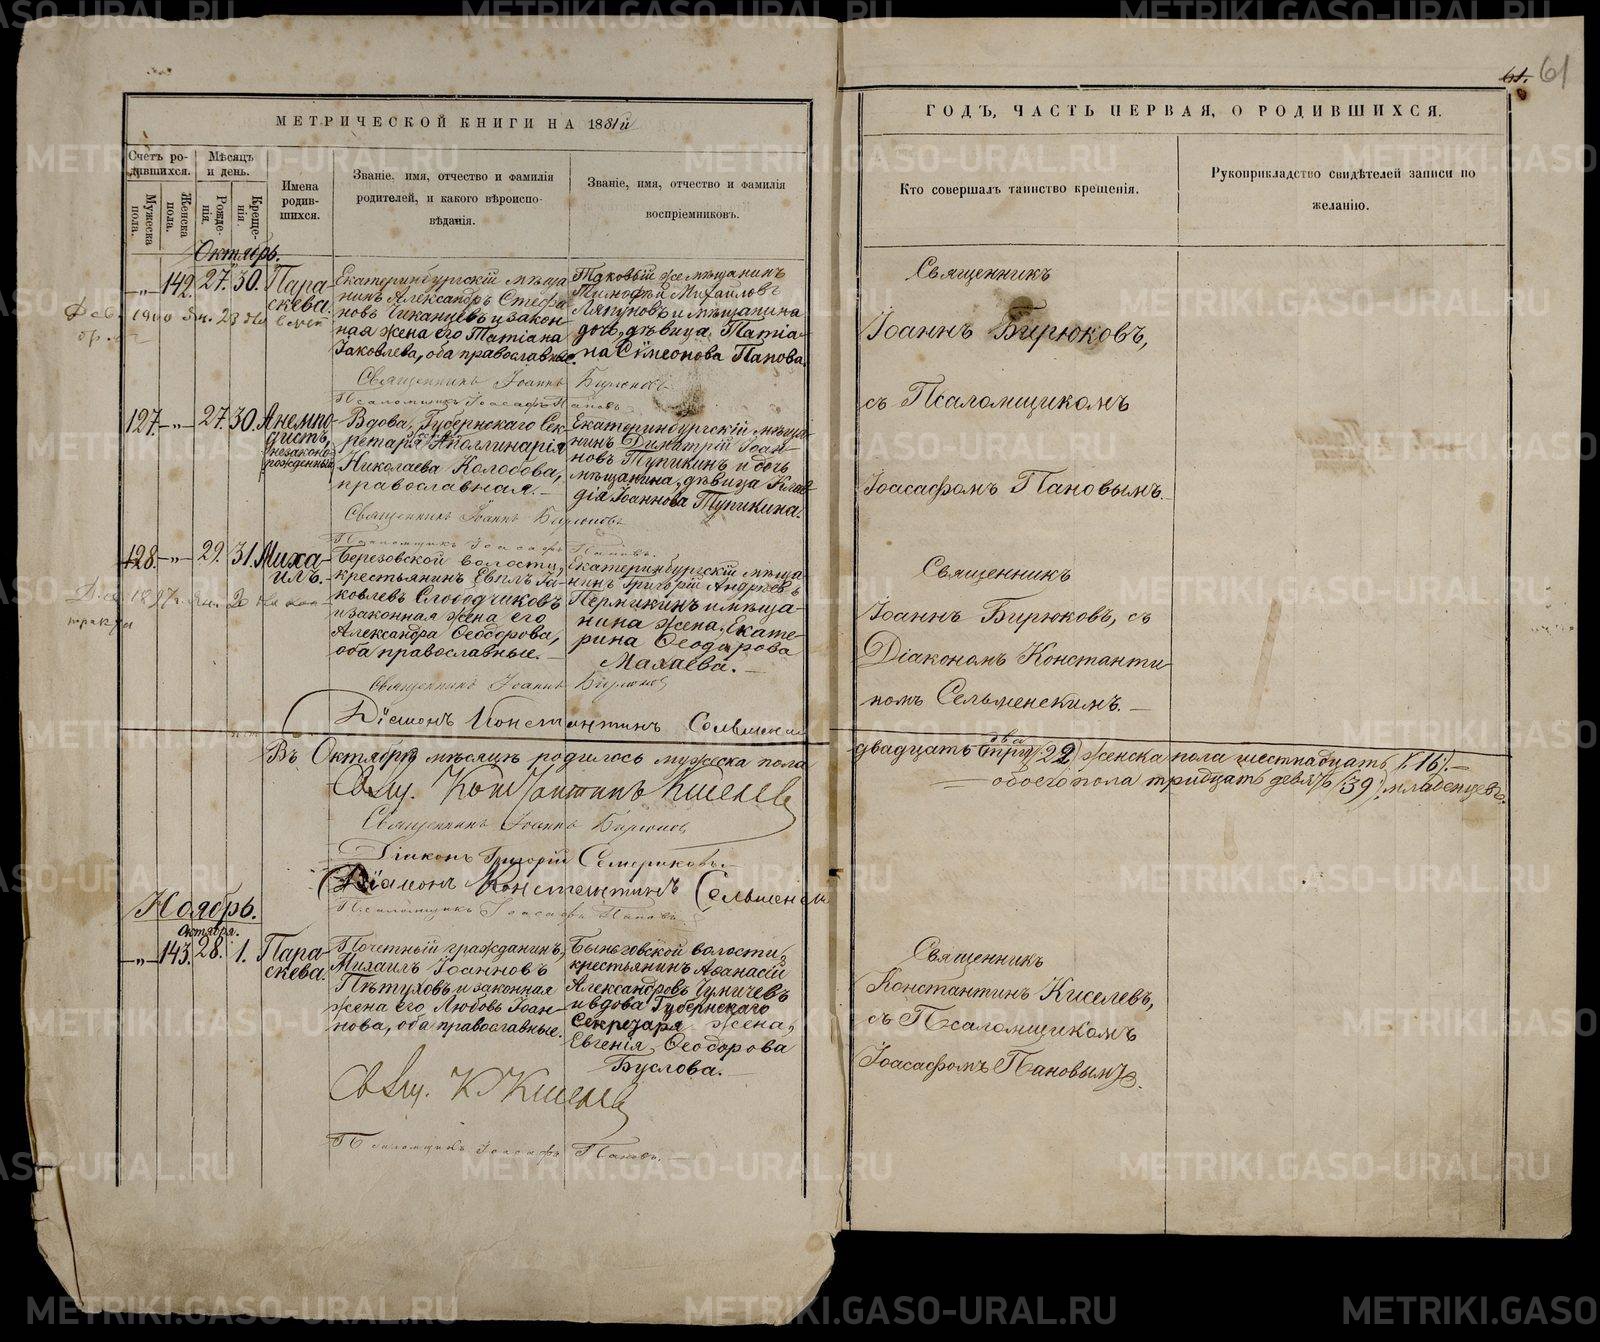 61. 61
МЕТРИЧЕСКОЙ КНИГИ НА 1881й
ГОДЪ, ЧАСТЬ ПЕРВАЯ, О РОДИВШИХСЯ.
Счетъ ро-
дившихся.
Мужеска
пола.
Женска
пола.
Мѣсяцъ
и день.
Рожде-
нія.
Креще-
нія.
Имена
родив-
шихся.
Званіе, имя, отчество и фамилія
родителей, и какого вѣроиспо-
вѣданія.
Званіе, имя, отчество и фамилія
воспріемниковъ.
Кто совершалъ таинство крещенія.
Рукоприкладство свидѣтелей записи по
желанію.
Октябрь.
—„— 142. 27. 30. Пара-
скева.
Екатеринбургскій мѣща-
нинъ Александръ Стефа-
новъ Чиканцевъ и закон-
ная жена его Татіана
Іаковлева, оба православные.
Таковый же мѣщанинъ
Тимофей Михайловъ
Ляпуновъ и мѣщанина
дочь, дѣвица Татіа-
на Сѵмеонова Панова.
Священникъ
Іоаннъ Бирюковъ,
съ Псаломщикомъ
Іоасафомъ Пановымъ.
Священникъ Іоаннъ Бирюковъ
Псаломщикъ Іоасафъ Пановъ
127. —„— 27. 30. Анемпо-
дистъ,
незаконно-
рожденный
Вдова, Губернскаго Сек-
ретаря Аполлинарія
Николаева Колобова,
православная.—
Екатеринбургскій мѣща-
нинъ Димитрій Іоан-
новъ Тупикинъ и дочь
мѣщанина, дѣвица Клав-
дія Іоаннова Тупикина.
Священникъ Іоаннъ Бирюковъ
Псаломщикъ Іоасафъ Пановъ.
128. —„— 29. 31. Миха-
илъ.
Березовской волости,
крестьянинъ Евѳимъ Іа-
ковлевъ Слободчиковъ
и законная жена его
Александра Ѳеодорова,
оба православные.—
Екатеринбургскій мѣща-
нинъ Григорій Андреевъ
Пермикинъ и мѣща-
нина жена, Екате-
рина Ѳеодорова
Малаева.—
Священникъ
Іоаннъ Бирюковъ, съ
Діакономъ Константи-
номъ Сельменскимъ.—
Священникъ Іоаннъ Бирюковъ
Діаконъ Константинъ
Въ Октябрѣ мѣсяцѣ родилось мужеска пола
двадцать два (22) женска пола шестнадцать (16).—
обоего пола тридцать девять (39) младенцевъ.
Свящ. Константинъ Киселевъ
Священникъ Іоаннъ Бирюковъ
Діаконъ Григорій Семериковъ.—
Діаконъ Константинъ Сельменскій
Псаломщикъ Іоасафъ Пановъ
Ноябрь.
Октября.
—„— 143. 28. 1. Пара-
скева.
Почетный гражданинъ,
Михаилъ Іоанновъ
Пѣтуховъ и законная
жена его Любовь Іоан-
нова, оба православные.
Быньговской волости,
крестьянинъ Аѳанасій
Александровъ Чуничевъ
и вдова Губернскаго
Секретаря жена,
Евгенія Ѳеодорова
Буслова.—
Священникъ
Константинъ Киселевъ,
съ Псаломщикомъ
Іоасафомъ Пановымъ.
Свящ. К Киселевъ
Псаломщикъ Іоасафъ Пановъ.—
METRIKI.GASO-URAL.RU